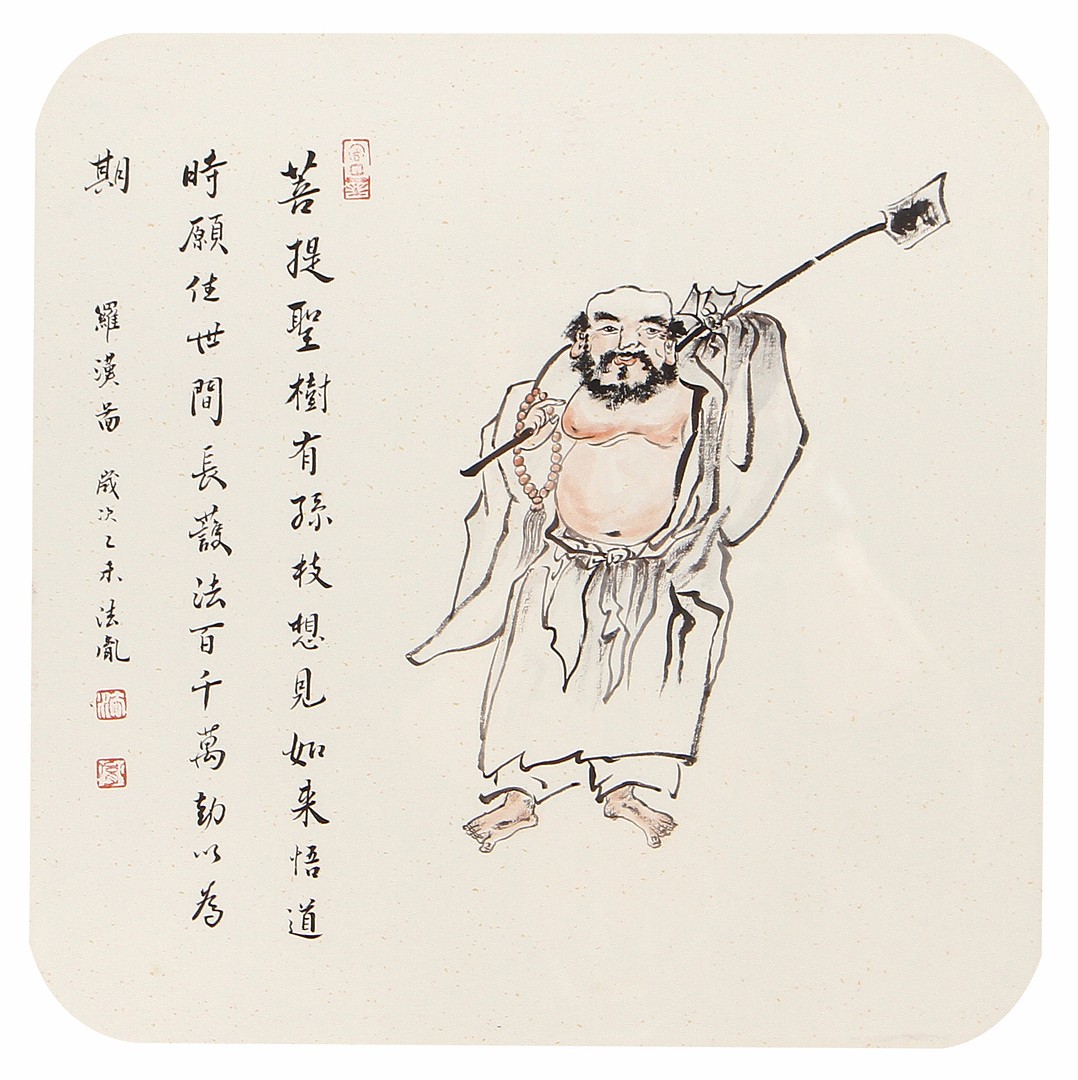 菩提聖樹有孫枝想見如来悟道
時願住世間長護法百千萬劫以為
期
羅漢啚 歲次乙未 法胤